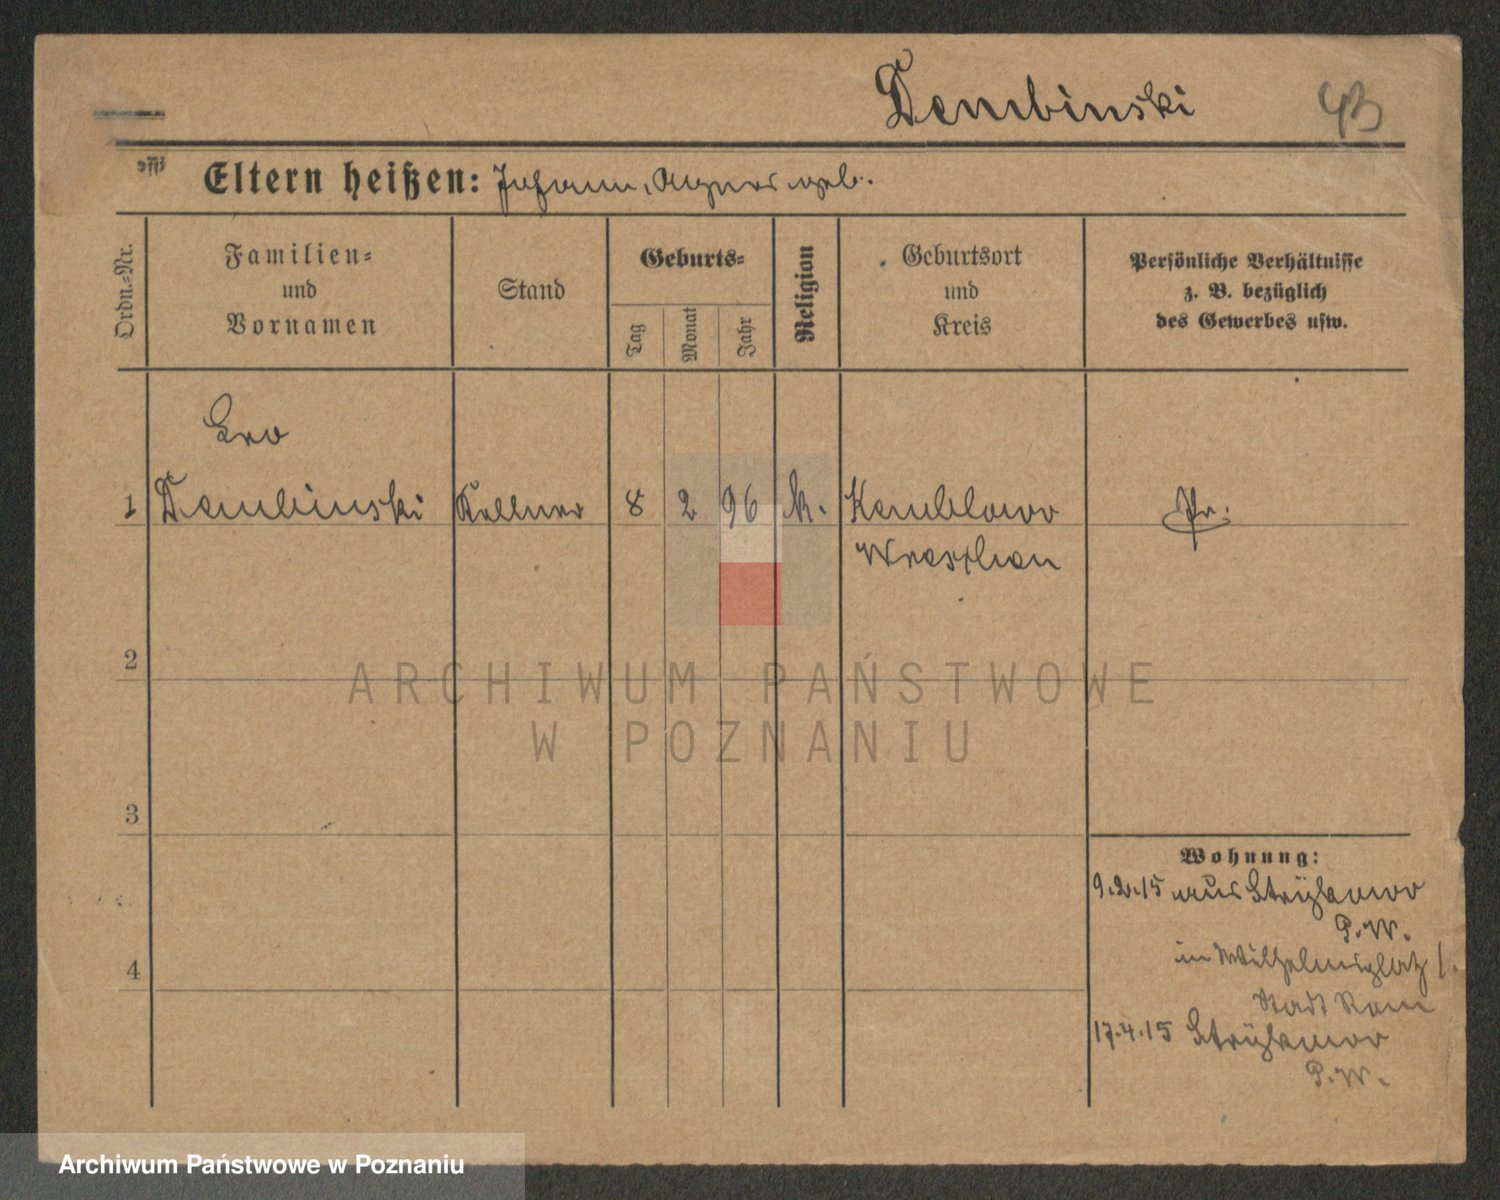 Dembinski
Eltern heißen: Johann, Agnes geb.
Ordn.-Nr.
Familien-
und
Vornamen
Stand
Geburts-
Tag
Monat
Jahr
Religion
Geburtsort
und
Kreis
Persönliche Verhältnisse
z. B. bezüglich
des Gewerbes usw.
Leo
1 Dembinski Kellner 8 2 96 k. Kemblowo Pr.
Wreschen
2
ARCHIWUM PAŃSTWOWE
W POZNANIU
3
Wohnung:
9.2.15 aus
P.W.
in Wilhelmsplatz 1.
4
Stadt Rom
17.4.15
P.W.
Archiwum Państwowe w Poznaniu